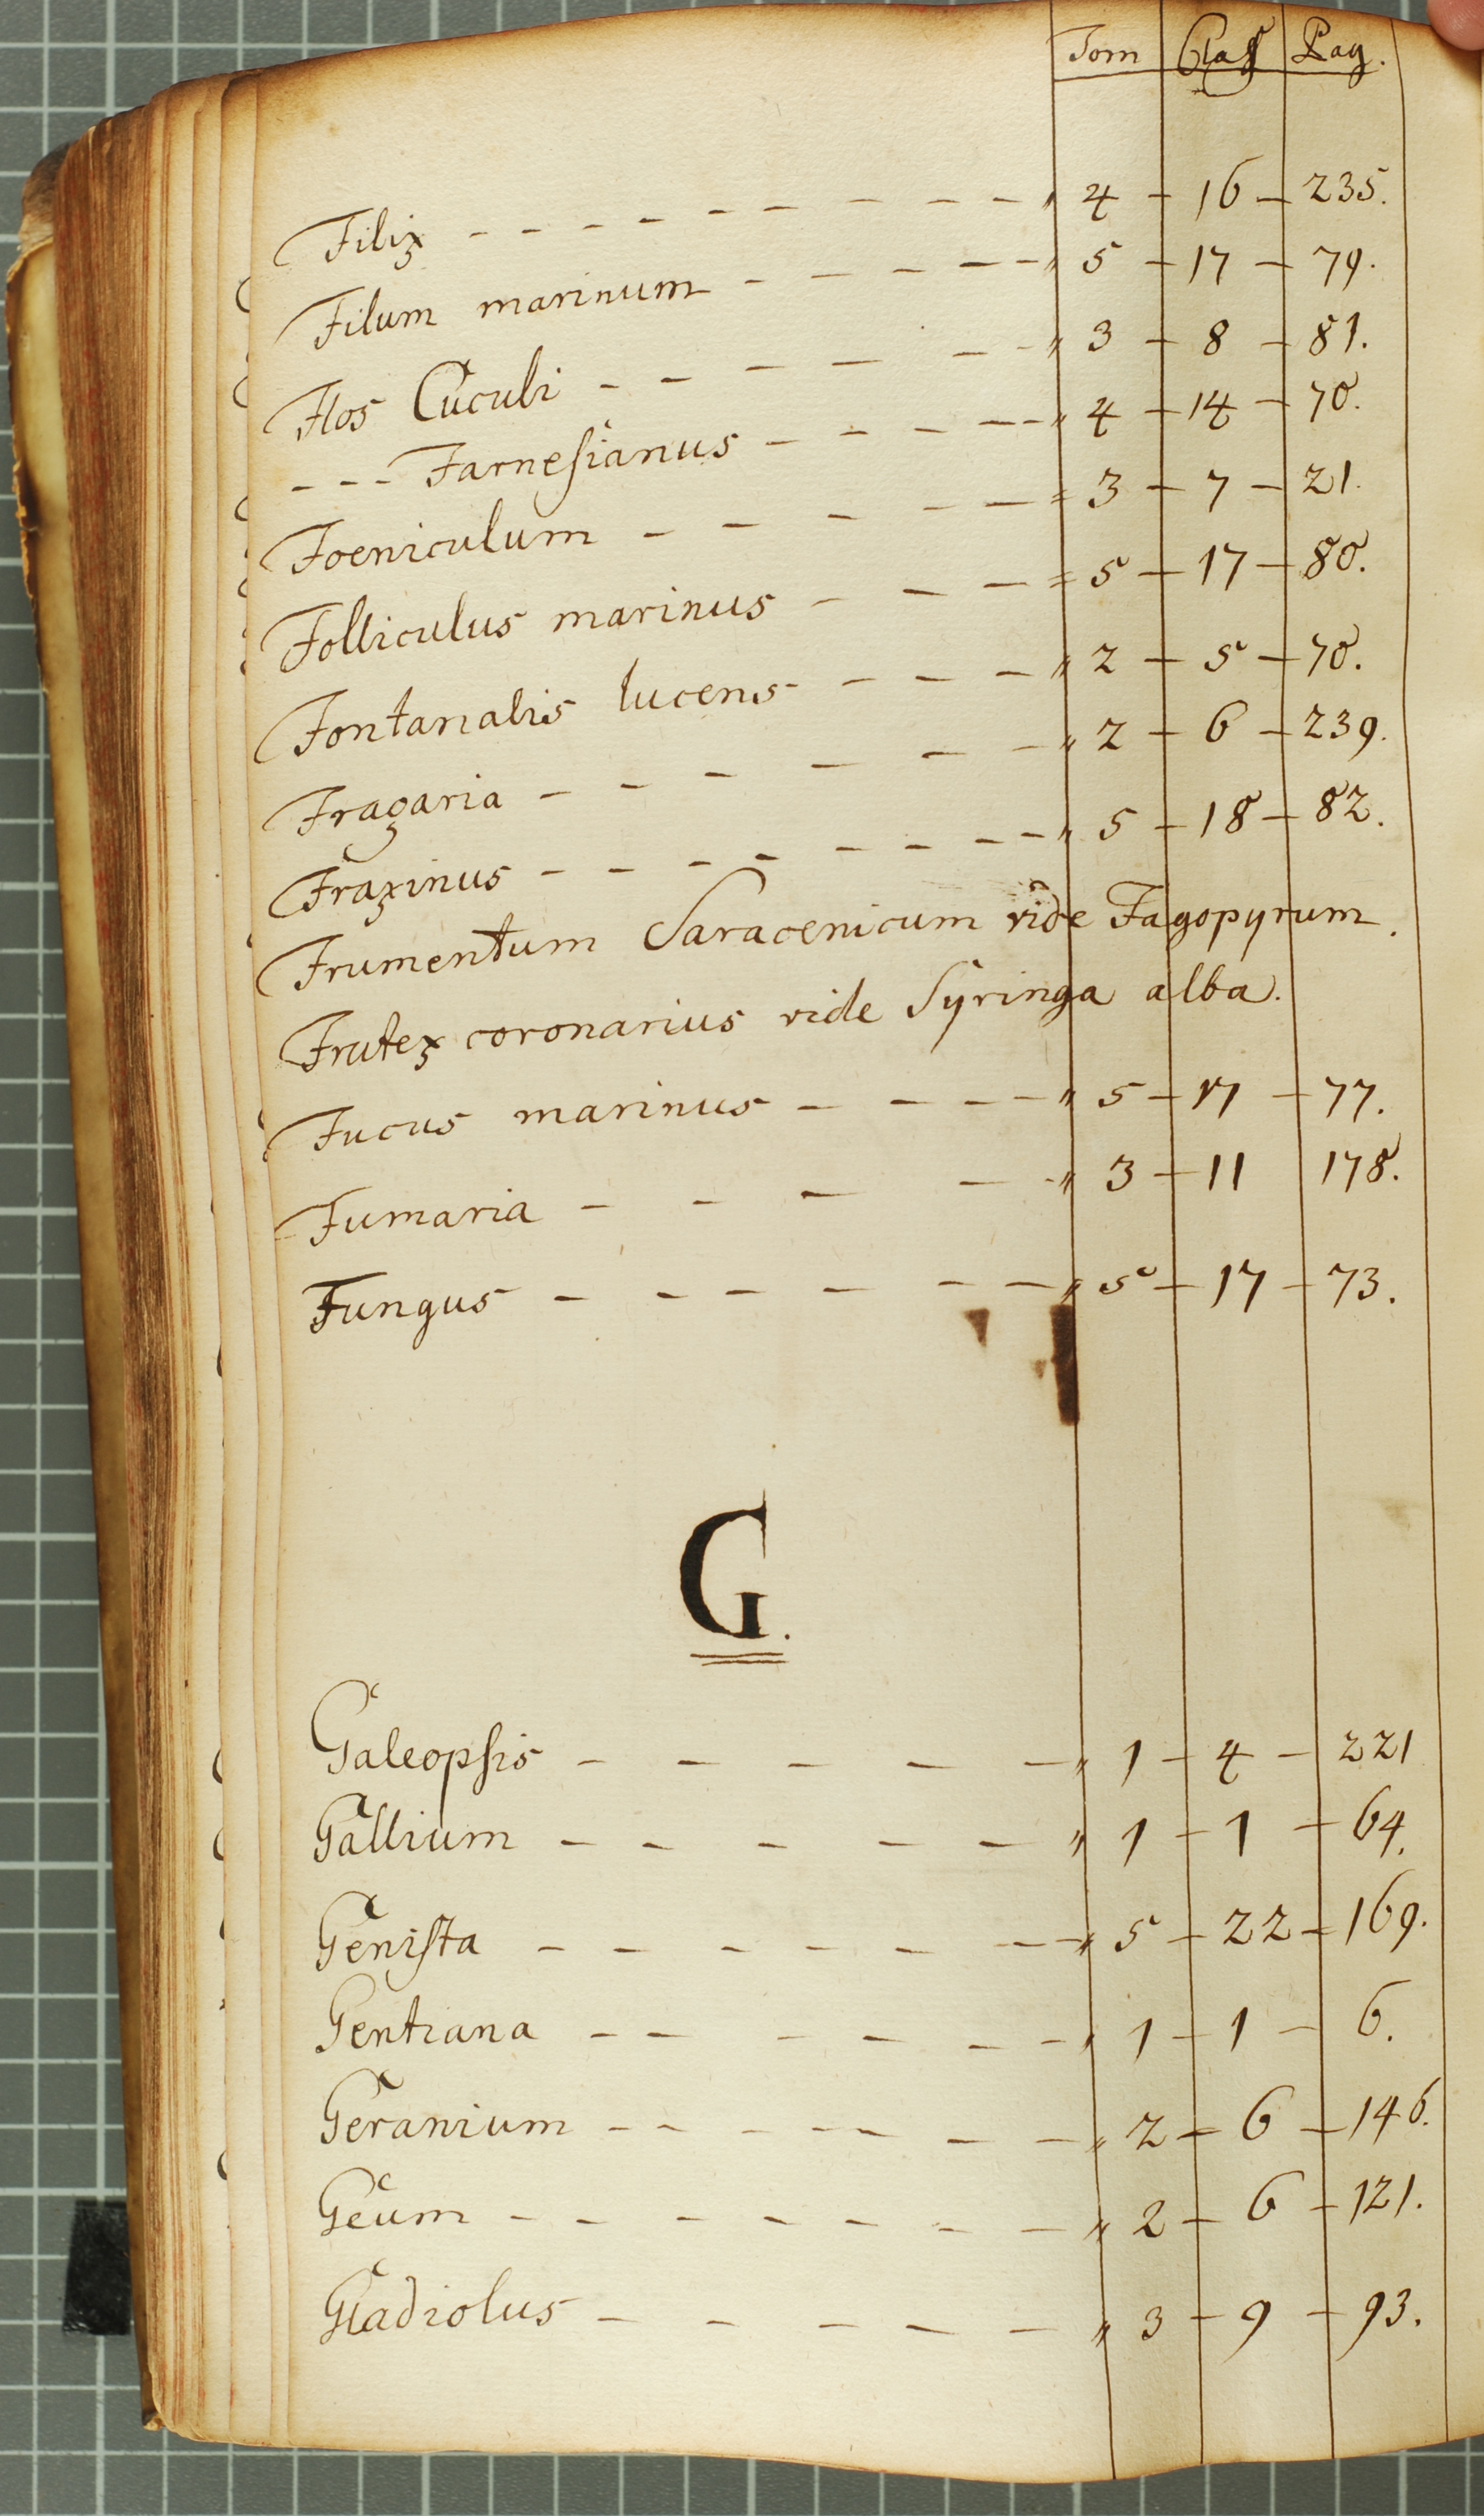 Tom Class Pag.
Filix - - - - - - - - - " 4 - 16 - 235.
Filum marinum - - - - - " 5 - 17 - 79.
Flos Cuculi - - - - - - " 3 - 8 - 81.
- - - Farnesianus - - - - - " 4 - 14 - 70.
Foeniculum - - - - - " 3 - 7 - 21.
Folliculus marinus - - - " 5 - 17 - 80.
Fontanalis lucens - - - - " 2 - 5 - 70.
Fragaria - - - - - - - " 2 - 6 - 239.
Fraxinus - - - - - - - - " 5 - 18 - 82.
Frumentum Saracenicum vide Fagopyrum.
Frutex coronarius vide Syringa alba.
Fucus marinus - - - - " 5 - 17 - 77.
Fumaria - - - - - " 3 - 11 178.
Fungus - - - - - - " 5 - 17 - 73.
G.
Galeopsis - - - - - " 1 - 4 - 221
Gallium - - - - - " 1 - 1 - 64.
Genista - - - - - - - " 5 - 22 - 169.
Gentiana - - - - - - " 1 - 1 - 6.
Geranium - - - - - - - " 2 - 6 - 146.
Geum - - - - - - - " 2 - 6 - 121.
Gladiolus - - - - - " 3 - 9 - 93.